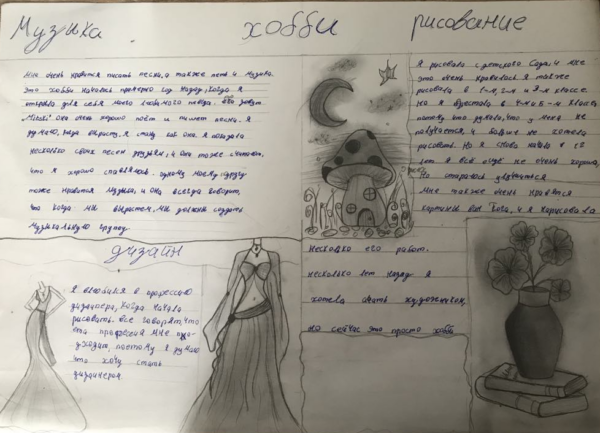 Музыка
хобби
рисование
Мне очень нравится писать песни, а также петь и музыка.
Это хобби начался примерно год назад, когда я
открыла для себя моего любимого певца. Его зовут
она очень хорошо поёт и пишет песни. Я
думаю, когда вырасту, я стану как она. Я показала
несколько своих песен друзьям, и они тоже считают,
что я хорошо справляюсь. Одному моему другу
тоже нравится музыка, и она всегда говорит,
что когда мы вырастем, мы должны создать
музыкальную группу.
Я рисовала с детского сада, и мне
это очень нравилось. Я также
рисовала в 1-м, 2-м и 3-м классе.
Но я бросила в 4-м и 5-м классе,
потому что думала, что у меня не
получается, и больше не хотела
рисовать. Но я снова начала в 6
лет. Я всё ещё не очень хороша,
но стараюсь
Мне также очень нравятся
картины Ван Гога, и я нарисовала
несколько его работ.
несколько лет назад я
хотела стать художником,
но сейчас это просто хобби
дизайн
Я влюбился в профессию
дизайнера, когда начала
рисовать. Все говорят, что
эта профессия мне
подходит, поэтому я думаю
что хочу стать
дизайнером.